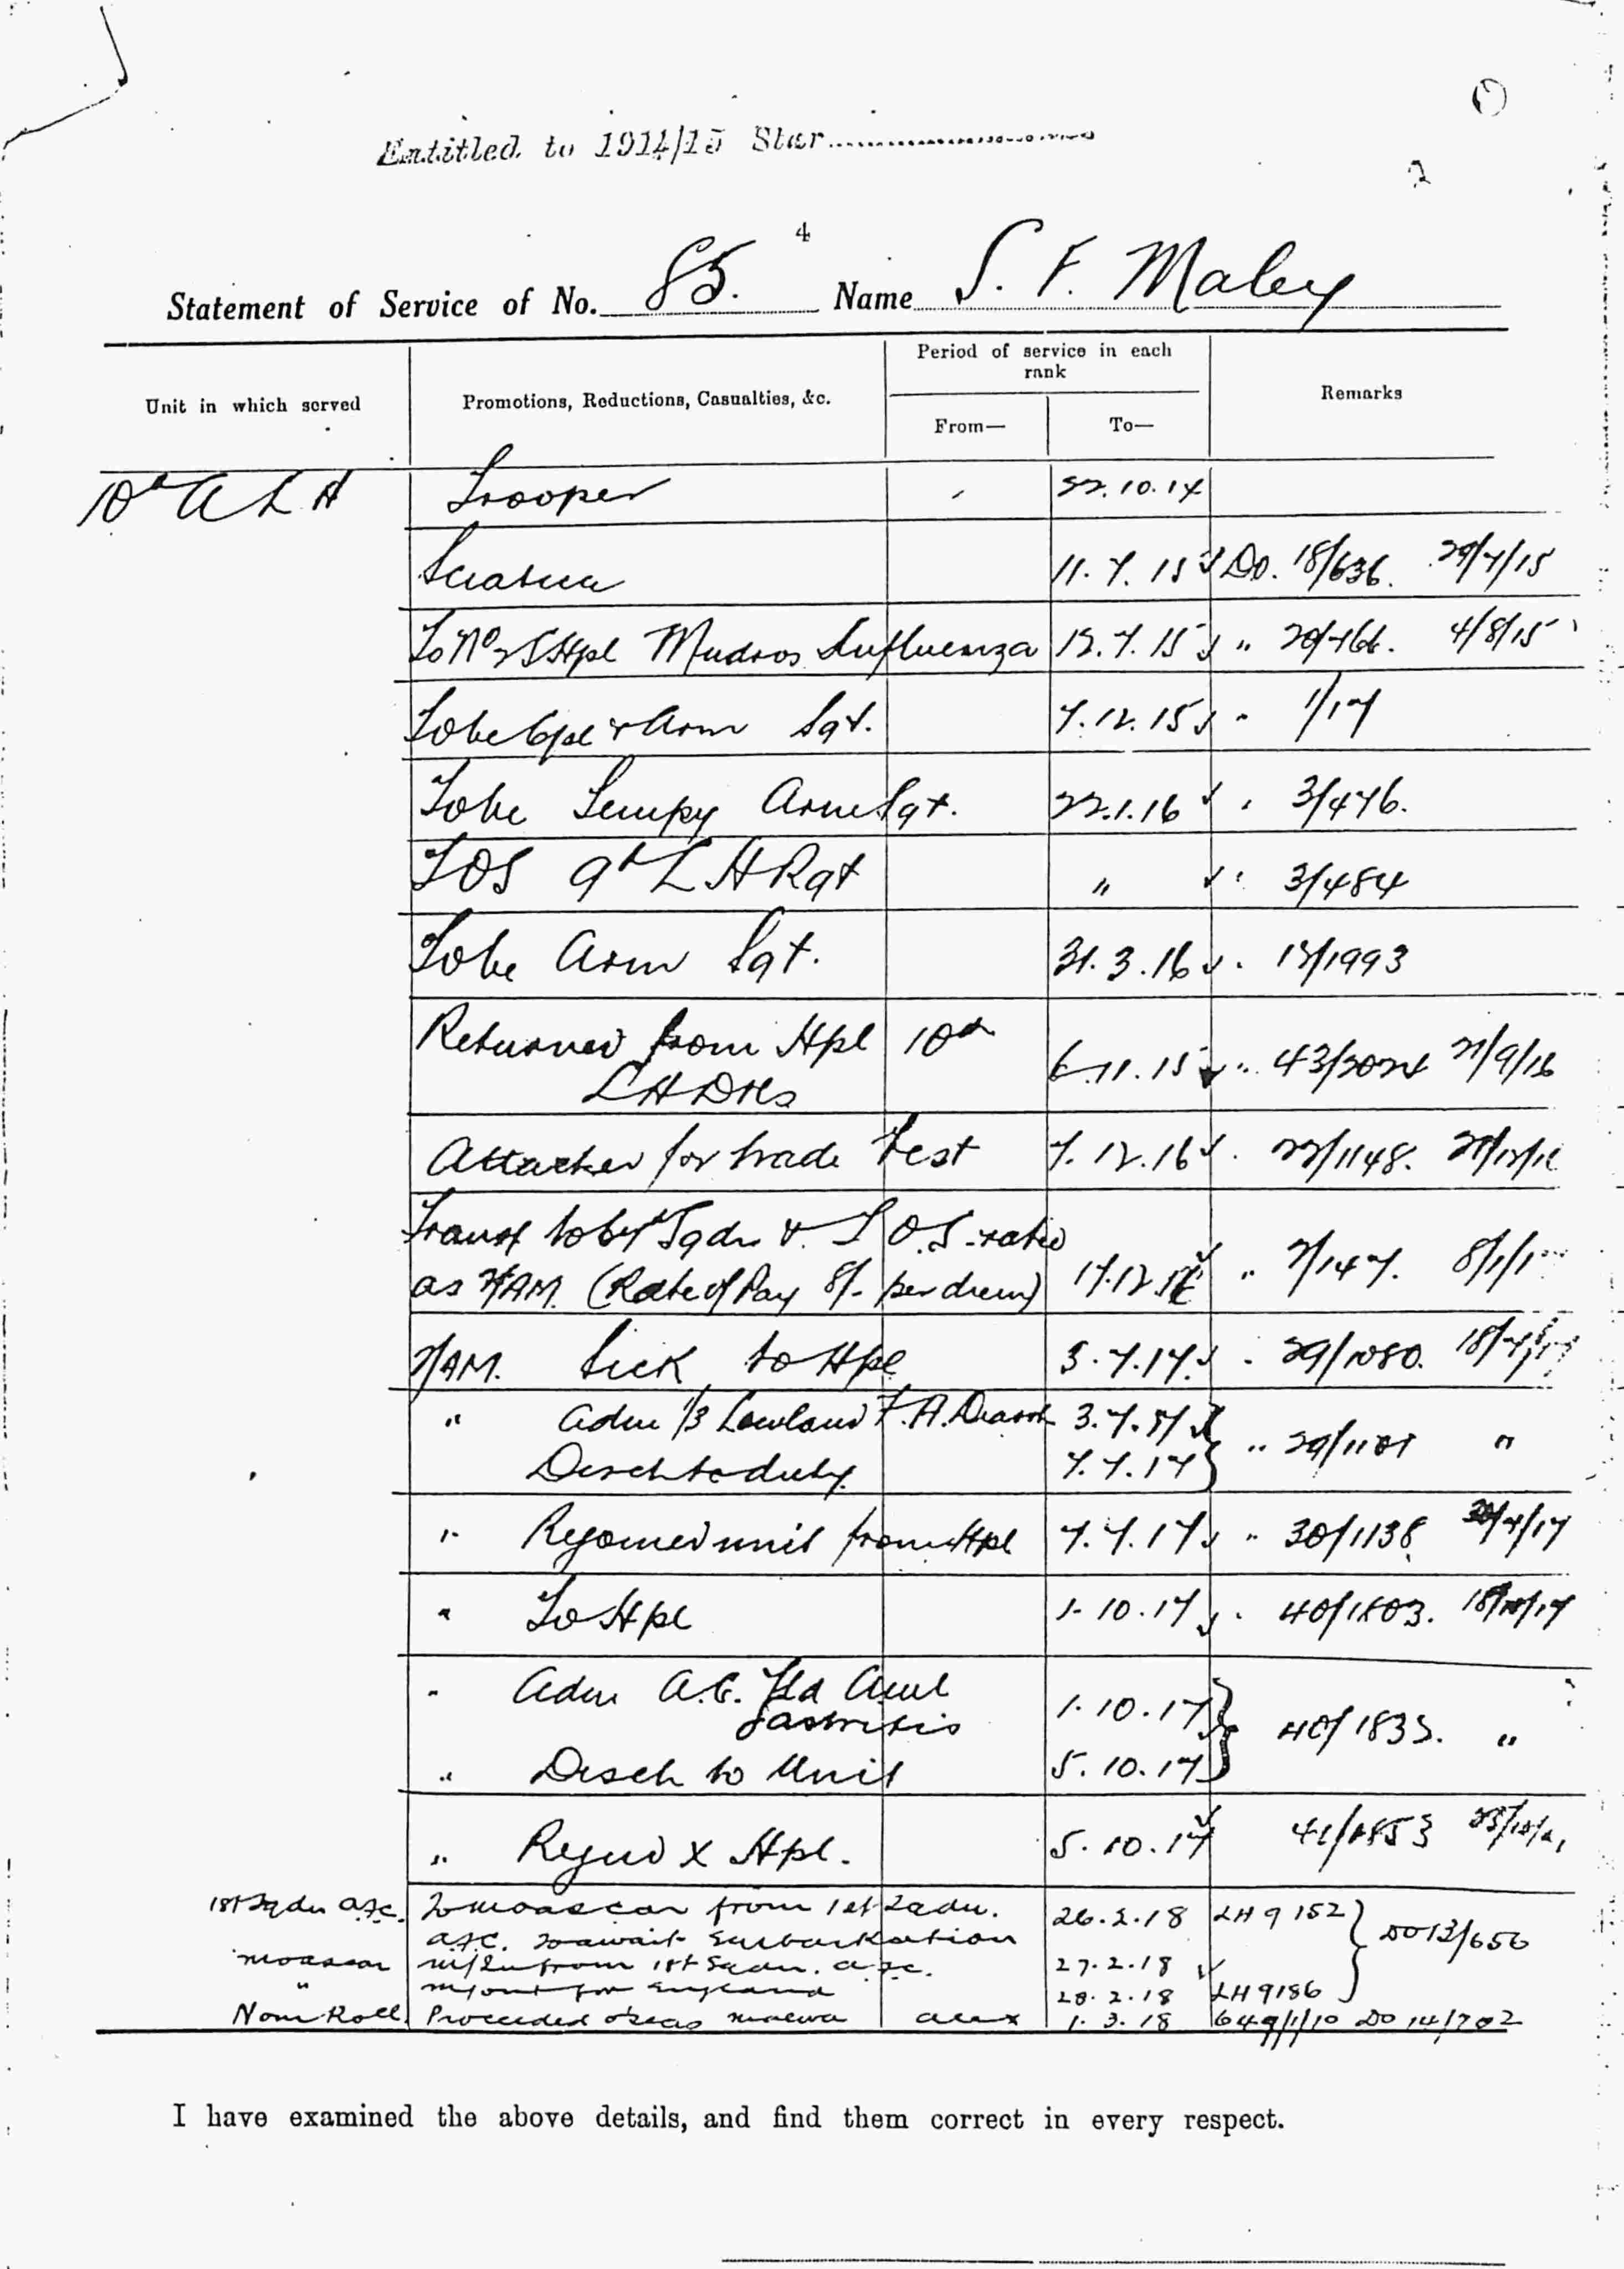 Entitled to 1914/15 Star
2
4
Statement of Service of No. 85. Name S. F. Maley
Unit in which served Promotions, Reductions, Casualties, &c. Period of service in each rank Remarks
From— To—
10th A L H Trooper 22.10.14
Sciatica 11.7.15 Do. 18/636. 29/7/15
To No 2 S Hpl Mudros Influenza 12.7.15 " 20/766. 4/8/15
To be Cpl & Arm Sgt. 7.12.15 " 1/17
To be Tempy Arm Sgt. 22.1.16 " 3/476.
TOS 9th L H Rgt " " 3/484
To be Arm Sgt. 31.3.16 " 13/1993
Returned from Hpl 10th
LH 6.11.15 " 43/2024 21/9/16
Attached for trade Test 7.12.16 22/1148.
Transf to 67th Sqdn & T O S
as 2/AM. (Rate of Pay 8/- per diem) 17.12.16 " 2/147. 8/1/1
2/AM. Sick to Hpl 3.7.17 " 29/1080. 18/7/17
" Adm 1/3 Lowland F.A. 3.7.17
Disch to duty. 7.7.17 " 29/1101 "
" Rejoined unit from Hpl 7.7.17 " 30/1138
" To Hpl 1.10.17 " 40/1803. 18/10/17
" Adm A.C. Fld Aml
Gastritis 1.10.17 40/1833. "
" Disch to Unit 5.10.17
" Rejnd X Hpl. 5.10.17 41/1853
1st Sqdn AFC. To Moascar from 1st Sqdn. 26.2.18 LH 9152 DO13/656
AFC. to await Embarkation
Moascar M/In from 1st Sqdn. AFC. 27.2.18
" M/out for England 28.2.18 LH 9186
Nom Roll. Proceeded o'seas Malwa Alex 1.3.18 649/1/10 DO 14/702
I have examined the above details, and find them correct in every respect.